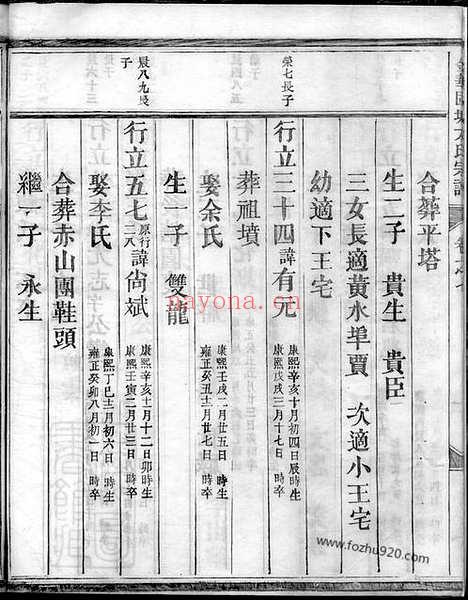 合葬平塔
生二子 貴生 貴臣
三女長適黃水埠賈 次適小王宅
幼適下王宅
榮七長子
行立三十四諱有元 康熙辛亥十月初四日辰時生 康熙戊戌三月十七日 時卒
葬祖墳
娶余氏 康熙壬戌二月廿五日 時生 雍正癸丑十二月廿七日 時卒
生一子 雙龍
晨八九長子
行立五七原行二八諱尚斌 康熙辛亥十二月十二日卯時生 康熙壬寅二月廿三日 時卒
娶李氏 康熙丁巳十一月初六日 時生 雍正癸卯八月初一日 時卒
合葬赤山團鞋頭
繼一子 永生
nayona.cn
www.fozhu920.com